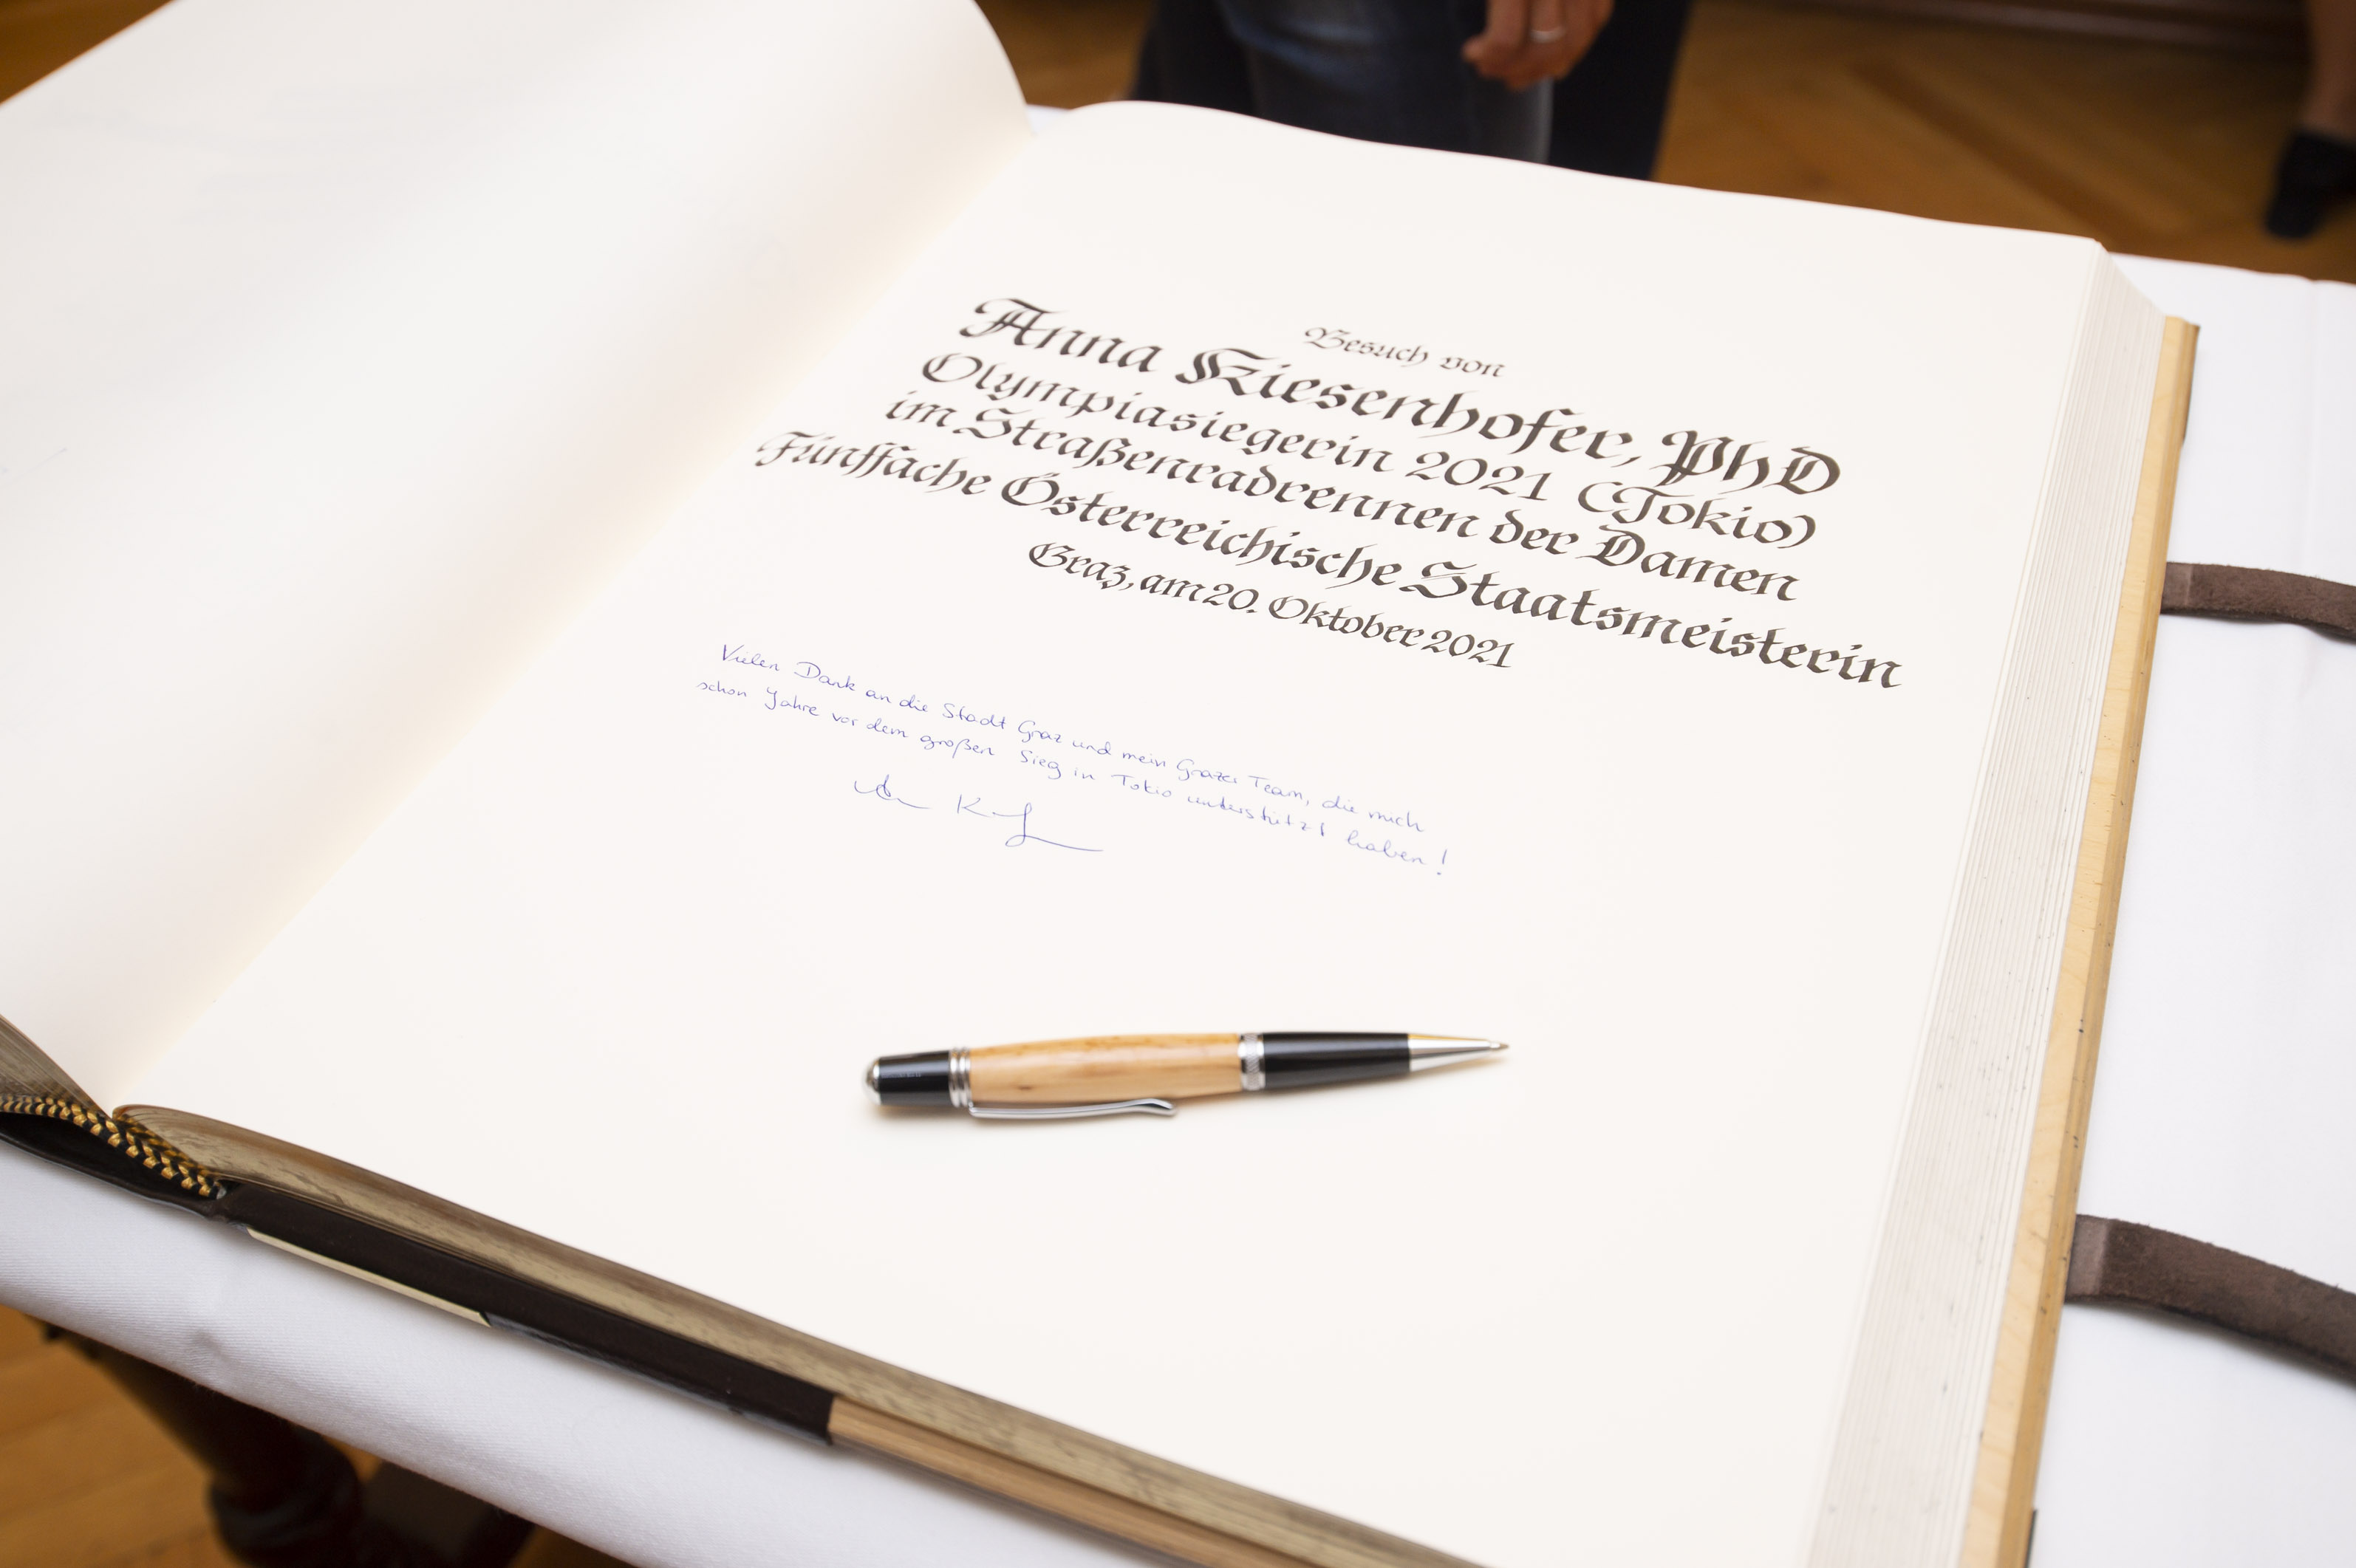 Besuch von
Anna Kiesenhofer, PhD
Olympiasiegerin 2021 (Tokio)
im Straßenradrennen der Damen
Fünffache Österreichische Staatsmeisterin
Graz, am 20. Oktober 2021
Vielen Dank an die Stadt Graz und mein Grazer Team, die mich
schon Jahre vor dem großen Sieg in Tokio unterstützt haben!